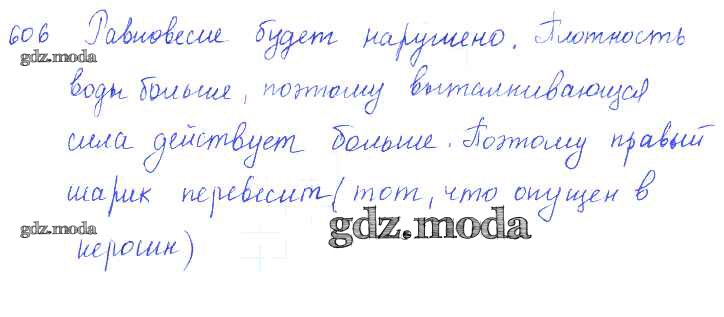 606 Равновесие будет нарушено. Плотность
gdz.moda
воды больше, поэтому выталкивающая
сила действует больше. Поэтому правый
шарик перевесит (тот, что опущен в
gdz.moda
gdz.moda
керосин)